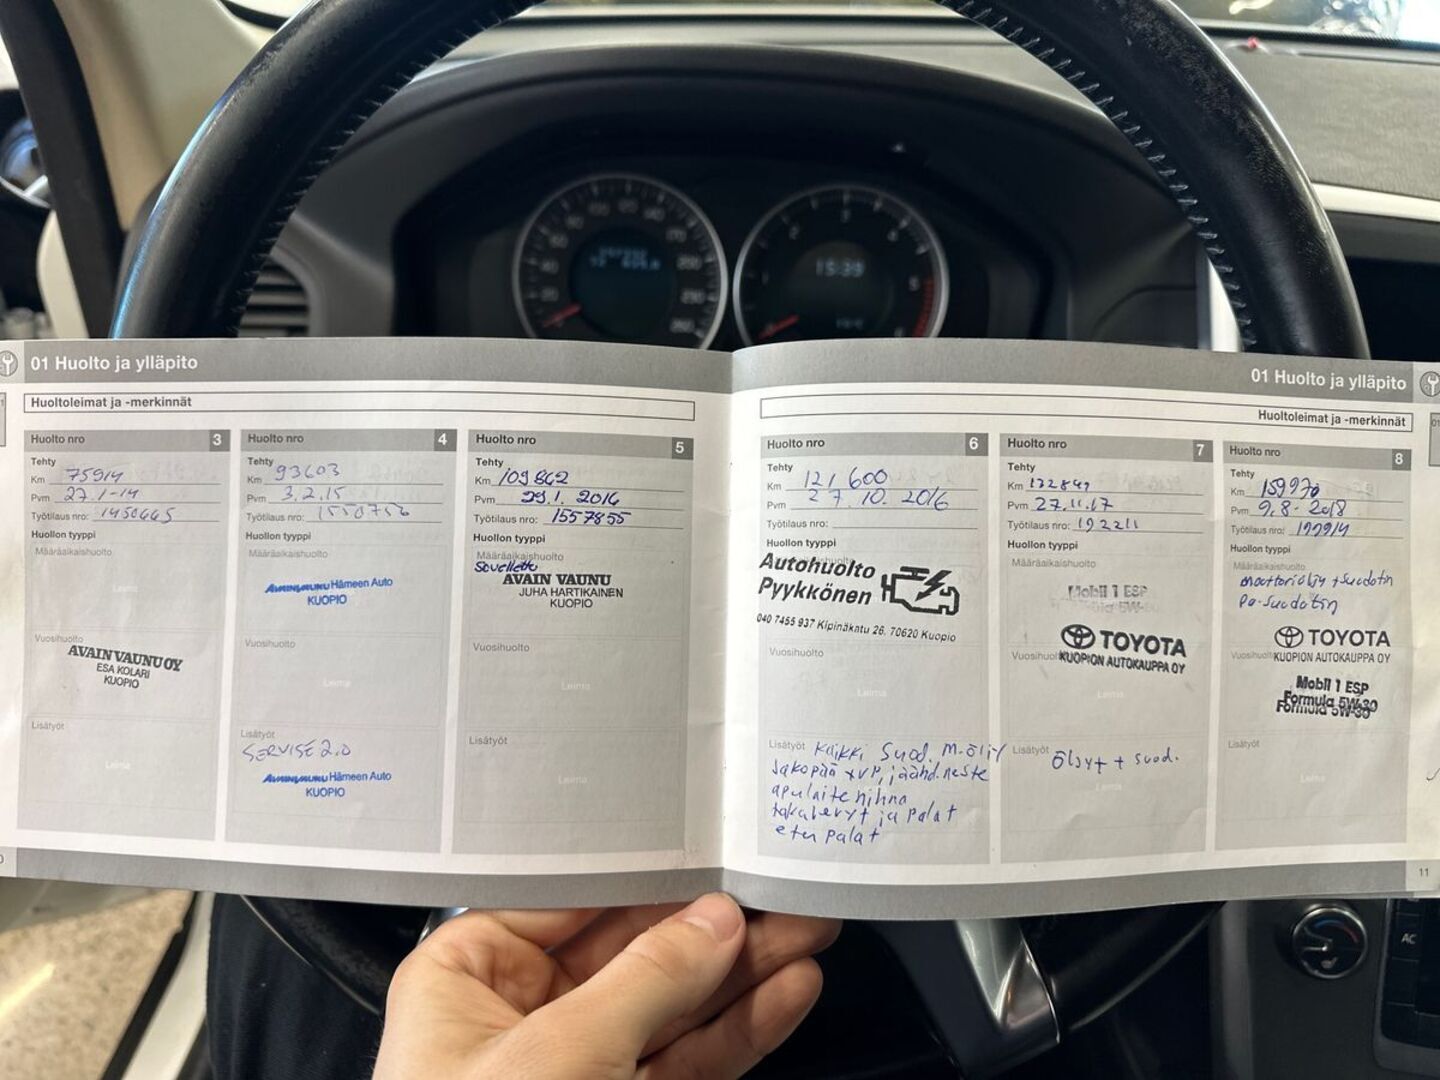 15:39
01 Huolto ja ylläpito
Huoltoleimat ja -merkinnät
Huolto nro 3
Tehty
Km 75914
Pvm 27.1-14
Työtilaus nro: 1450665
Huollon tyyppi
Määräaikaishuolto
Leima
Vuosihuolto
AVAIN VAUNU OY
ESA KOLARI
KUOPIO
Lisätyöt
Leima
Huolto nro 4
Tehty
Km 93603
Pvm 3.2.15
Työtilaus nro: 1550756
Huollon tyyppi
Määräaikaishuolto
AVAINVAUNU Hämeen Auto
KUOPIO
Vuosihuolto
Leima
Lisätyöt
SERVISE 2.0
AVAINVAUNU Hämeen Auto
KUOPIO
Huolto nro 5
Tehty
Km 109862
Pvm 29.1.2016
Työtilaus nro: 1557855
Huollon tyyppi
Määräaikaishuolto
Sovellettu
AVAIN VAUNU
JUHA HARTIKAINEN
KUOPIO
Vuosihuolto
Leima
Lisätyöt
Leima
01 Huolto ja ylläpito
Huoltoleimat ja -merkinnät
Huolto nro 6
Tehty
Km 121 600
Pvm 27.10.2016
Työtilaus nro:
Huollon tyyppi
Autohuolto
Pyykkönen
040 7455 937 Kipinäkatu 26, 70620 Kuopio
Vuosihuolto
Leima
Lisätyöt Kaikki Suod. M-öljy
Jakopää + VP, jäähd.neste
apulaitehihna
takalevyt ja palat
etu palat
Huolto nro 7
Tehty
Km 132849
Pvm 27.11.17
Työtilaus nro: 192211
Huollon tyyppi
Määräaikaishuolto
Mobil 1 ESP
TOYOTA
Vuosihuolto
KUOPION AUTOKAUPPA OY
Leima
Lisätyöt
Öljyt + suod.
Leima
Huolto nro 8
Tehty
Km 159970
Pvm 9.8-2018
Työtilaus nro: 199914
Huollon tyyppi
Määräaikaishuolto
moottoriöljy + suodatin
pa-suodatin
TOYOTA
Vuosihuolto
KUOPION AUTOKAUPPA OY
Mobil 1 ESP
Formula 5W-30
Formula 5W-30
Lisätyöt
Leima
11
AC